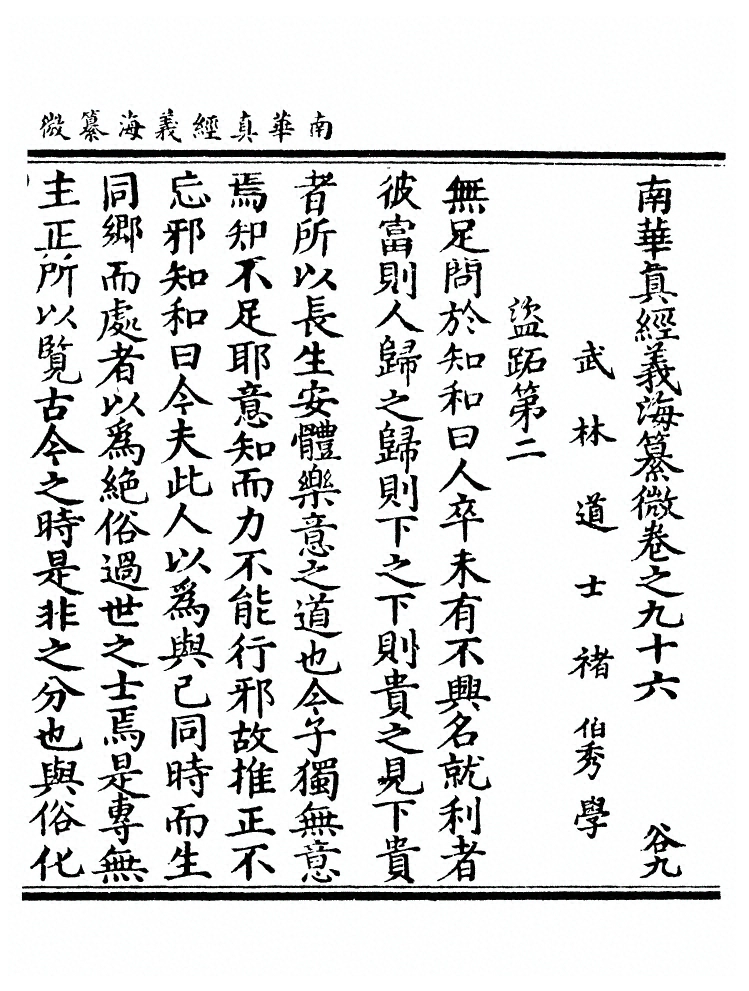 南華真經義海纂微
南華真經義海纂微卷之九十六 谷九
武林道士褚伯秀學
盜跖第二
無足問於知和曰人卒未有不興名就利者
彼富則人歸之歸則下之下則貴之見下貴
者所以長生安體樂意之道也今子獨無意
焉知不足耶意知而力不能行邪故推正不
忘邪知和曰今夫此人以為與己同時而生
同鄉而處者以為絕俗過世之士焉是專無
主正所以覽古今之時是非之分也與俗化